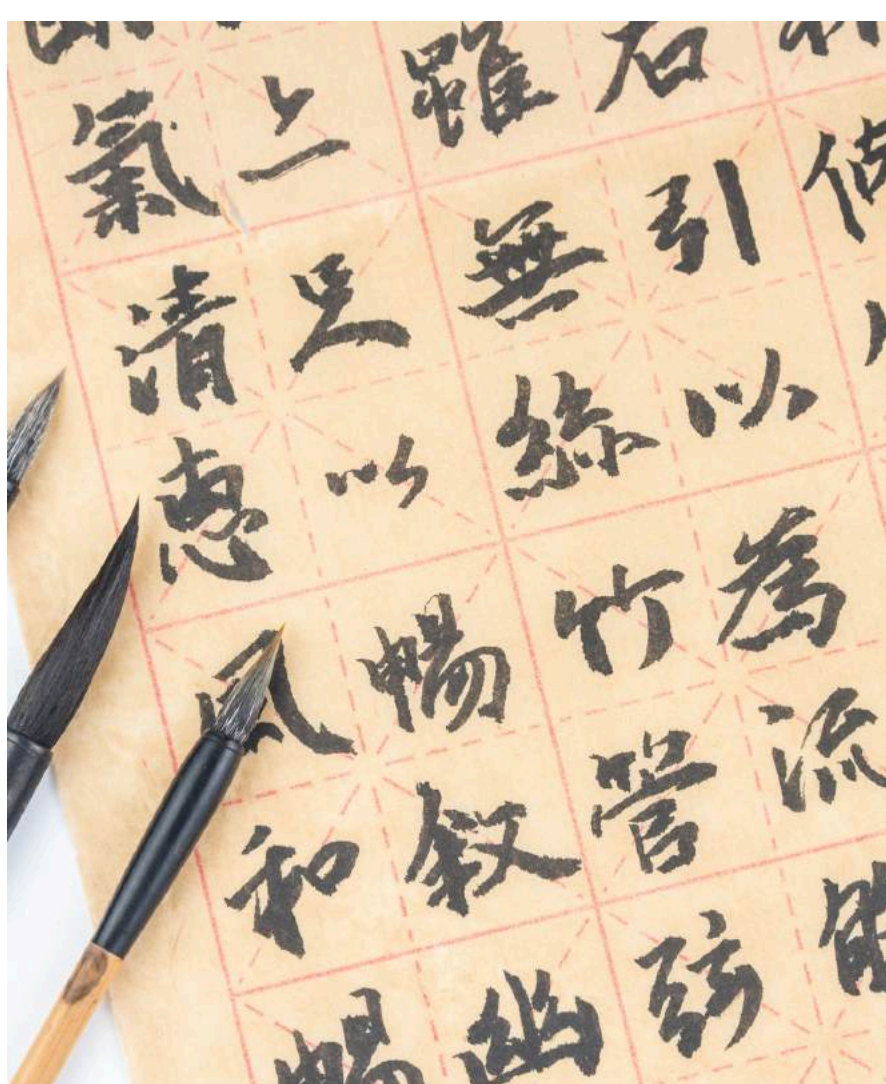 右引以為流
雖無絲竹管弦
足以暢叙幽
氣清惠風和暢